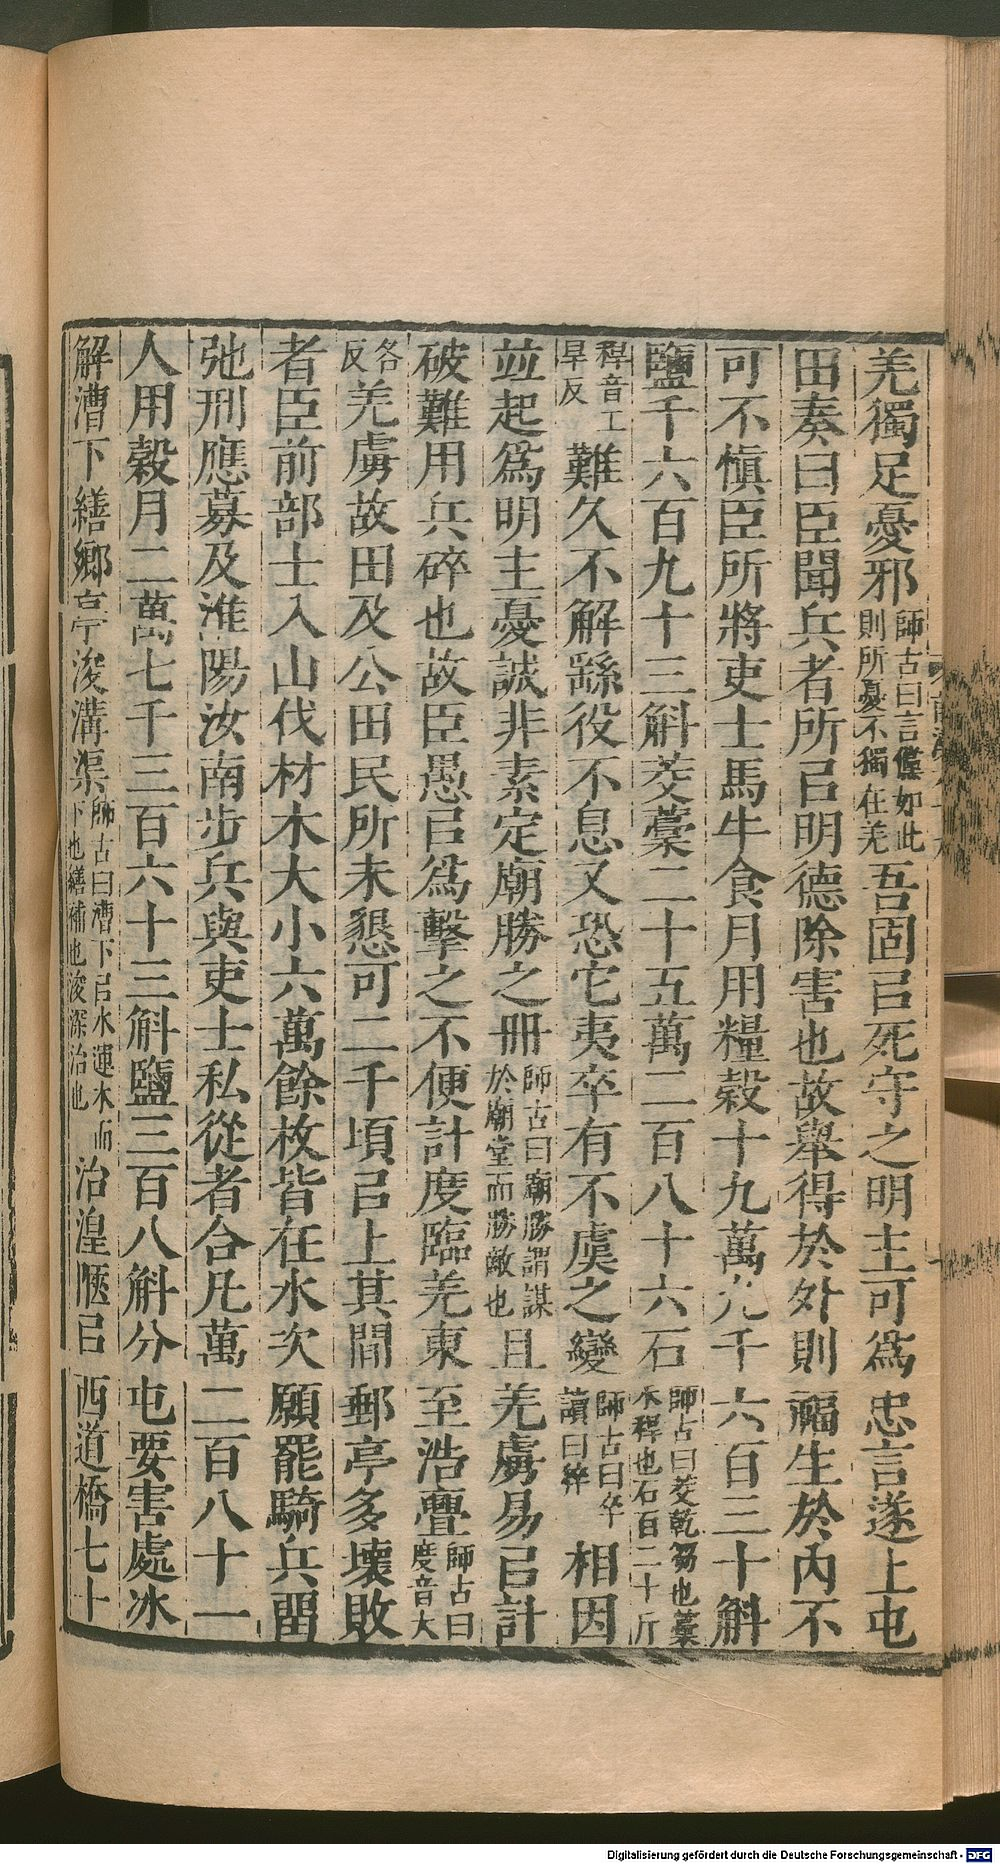 羌獨足憂邪師古曰言儻如此則所憂不獨在羌吾固㠯死守之明主可爲忠言遂上屯
田奏曰臣聞兵者所㠯明德除害也故舉得於外則福生於內不
可不愼臣所將吏士馬牛食月用糧穀十九萬九千六百三十斛
鹽千六百九十三斛茭藁二十五萬二百八十六石師古曰茭乾芻也藁禾稈也石百二十斤
稈音工旱反難久不解繇役不息又恐它夷卒有不虞之變師古曰卒讀曰猝相因
並起爲明主憂誠非素定廟勝之冊師古曰廟勝謂謀於廟堂而勝敵也且羌虜易㠯計
破難用兵碎也故臣愚㠯爲擊之不便計度臨羌東至浩亹師古曰度音大
各反羌虜故田及公田民所未懇可二千頃㠯上其閒郵亭多壞敗
者臣前部士入山伐材木大小六萬餘枚皆在水次願罷騎兵畱
弛刑應募及淮陽汝南步兵與吏士私從者合凡萬二百八十一
人用穀月二萬七千三百六十三斛鹽三百八斛分屯要害處冰
解漕下繕鄉亭浚溝渠師古曰漕下㠯水運木而下也繕補也浚深治也治湟陿㠯西道橋七十
Digitalisierung gefördert durch die Deutsche Forschungsgemeinschaft - DFG